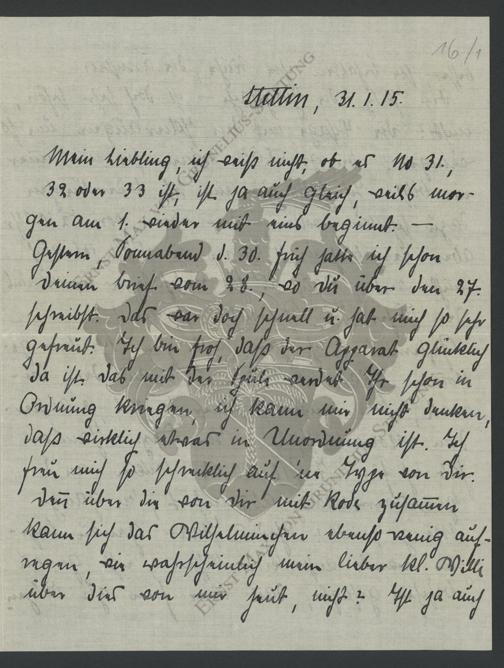 16/1
Stettin, 31.1.15.
Mein Liebling, ich weiß nicht, ob es No 31,
32 oder 33 ist, ist ja auch gleich, weils mor-
gen am 1. wieder mit eins beginnt. —
Gestern, Sonnabend d. 30. früh hatte ich schon
Deinen Brief vom 28., wo Du über den 27.
schreibst. Das war doch schnell u. hat mich so sehr
gefreut. Ich bin froh, daß der Apparat glücklich
da ist. das mit der Spule werdet Ihr schon in
Ordnung kriegen, ich kann mir nicht denken,
daß wirklich etwas in Unordnung ist. Ich
freu mich so schrecklich auf 'ne Type von Dir.
Denn über die von Dir mit Kode zusammen
kann sich das Wilhelminchen ebenso wenig auf-
regen, wie wahrscheinlich mein lieber kl. Willi
über dies von mir heut, nicht? Ist ja auch
ERNST MAGNUS GRUNELIUS-STIFTUNG